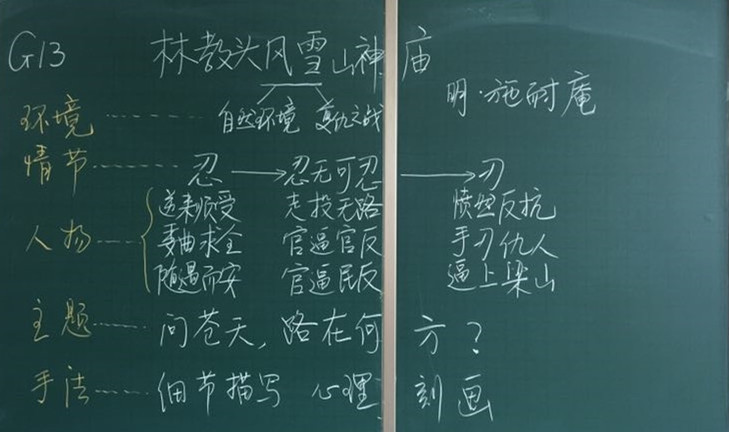 G13 林教头风雪山神庙
明·施耐庵
环境 自然环境 复仇之战
情节 忍 → 忍无可忍 → 刃
逆来顺受 走投无路 愤然反抗
人物 委曲求全 官逼官反 手刃仇人
随遇而安 官逼民反 逼上梁山
主题 问苍天，路在何方？
手法 细节描写 心理刻画